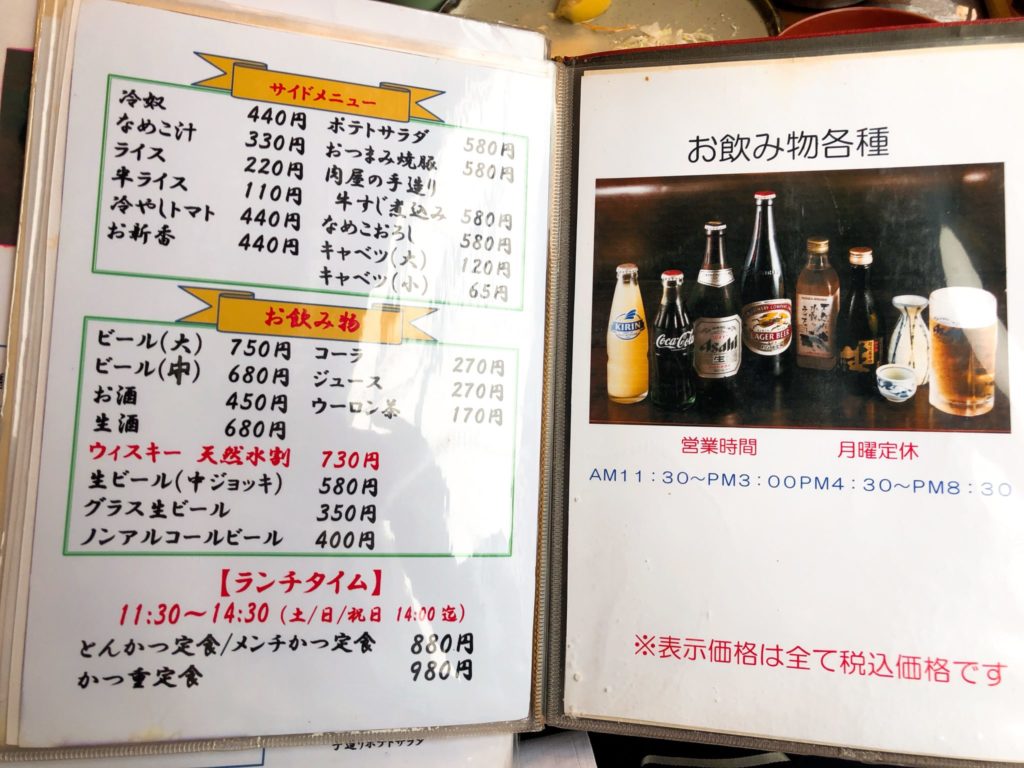 サイドメニュー
冷奴 440円
なめこ汁 330円
ライス 220円
半ライス 110円
冷やしトマト 440円
お新香 440円
ポテトサラダ 580円
おつまみ焼豚 580円
肉屋の手造り
牛すじ煮込み 580円
なめこおろし 580円
キャベツ(大) 120円
キャベツ(小) 65円
お飲み物
ビール(大) 750円
ビール(中) 680円
お酒 450円
生酒 680円
コーラ 270円
ジュース 270円
ウーロン茶 170円
ウィスキー 天然水割 730円
生ビール(中ジョッキ) 580円
グラス生ビール 350円
ノンアルコールビール 400円
【ランチタイム】
11:30～14:30 (土/日/祝日 14:00 迄)
とんかつ定食/メンチかつ定食 880円
かつ重定食 980円
手造りポテトサラダ
お飲み物各種
KIRIN
Coca-Cola
Asahi
KIRIN
LAGER BEER
営業時間 月曜定休
AM11：30～PM3：00PM4：30～PM8：30
※表示価格は全て税込価格です